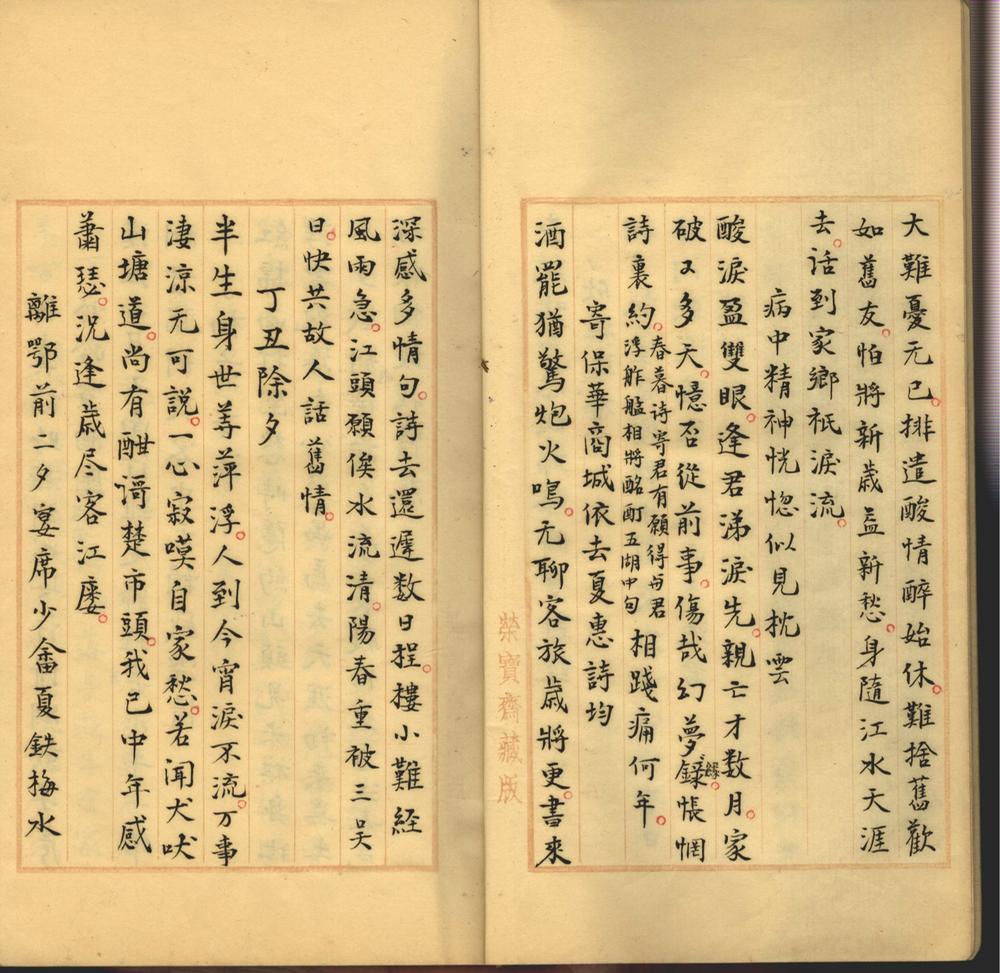 大難憂元已排遣酸情醉始休難捨舊歡
如舊友怕將新歲益新愁身隨江水天涯
去話到家鄉祇淚流
病中精神恍惚似見枕雲
酸淚盈雙眼逢君涕淚先親亡才数月家
破又多天憶否從前事傷哉幻夢緣悵惘
詩裏約春暮詩寄君有願得与君浮舴艋相將酩酊五湖中句相踐痛何年
寄保華商城依去夏惠詩均
酒罷猶驚炮火鳴无聊客旅歲將更書來
榮寶齋藏版
深感多情句詩去還遲数日程樓小難経
風雨急江頭願俟水流清陽春重被三吴
日快共故人話舊情
丁丑除夕
半生身世等萍浮人到今宵淚不流万事
淒涼无可說一心寂嘆自家愁若闻犬吠
山塘道尚有酣謌楚市頭我已中年感
蕭瑟況逢歲尽客江廔
離鄂前二夕宴席少畬夏鉄梅水